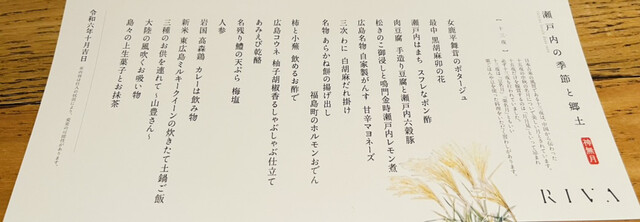 瀬戸内の季節と郷土
神無月
RIVA
女鹿平舞茸のポタージュ
最中 黒胡麻卯の花
瀬戸内はまち スフレなポン酢
肉豆腐 手造り豆腐と瀬戸内六穀豚
松きのこ御浸しと鳴門金時瀬戸内レモン煮
広島名物 自家製がんす 甘辛マヨネーズ
三次 わに 白胡麻だれ掛け
名物 あらかね餅の揚げ出し
福島町のホルモンおでん
柿と小蕪 飲めるお酢で
広島コウネ 柚子胡椒香るしゃぶしゃぶ仕立て
あみえび乾酪
人参
名残り鱧の天ぷら 梅塩
岩国 高森鶏 カレーは飲み物
新米 東広島ミルキークイーンの炊きたて土鍋ご飯
三種のお供を連れて～山豊さん～
大陸の風吹くお吸い物
島々の上生菓子とお抹茶
令和六年十月吉日